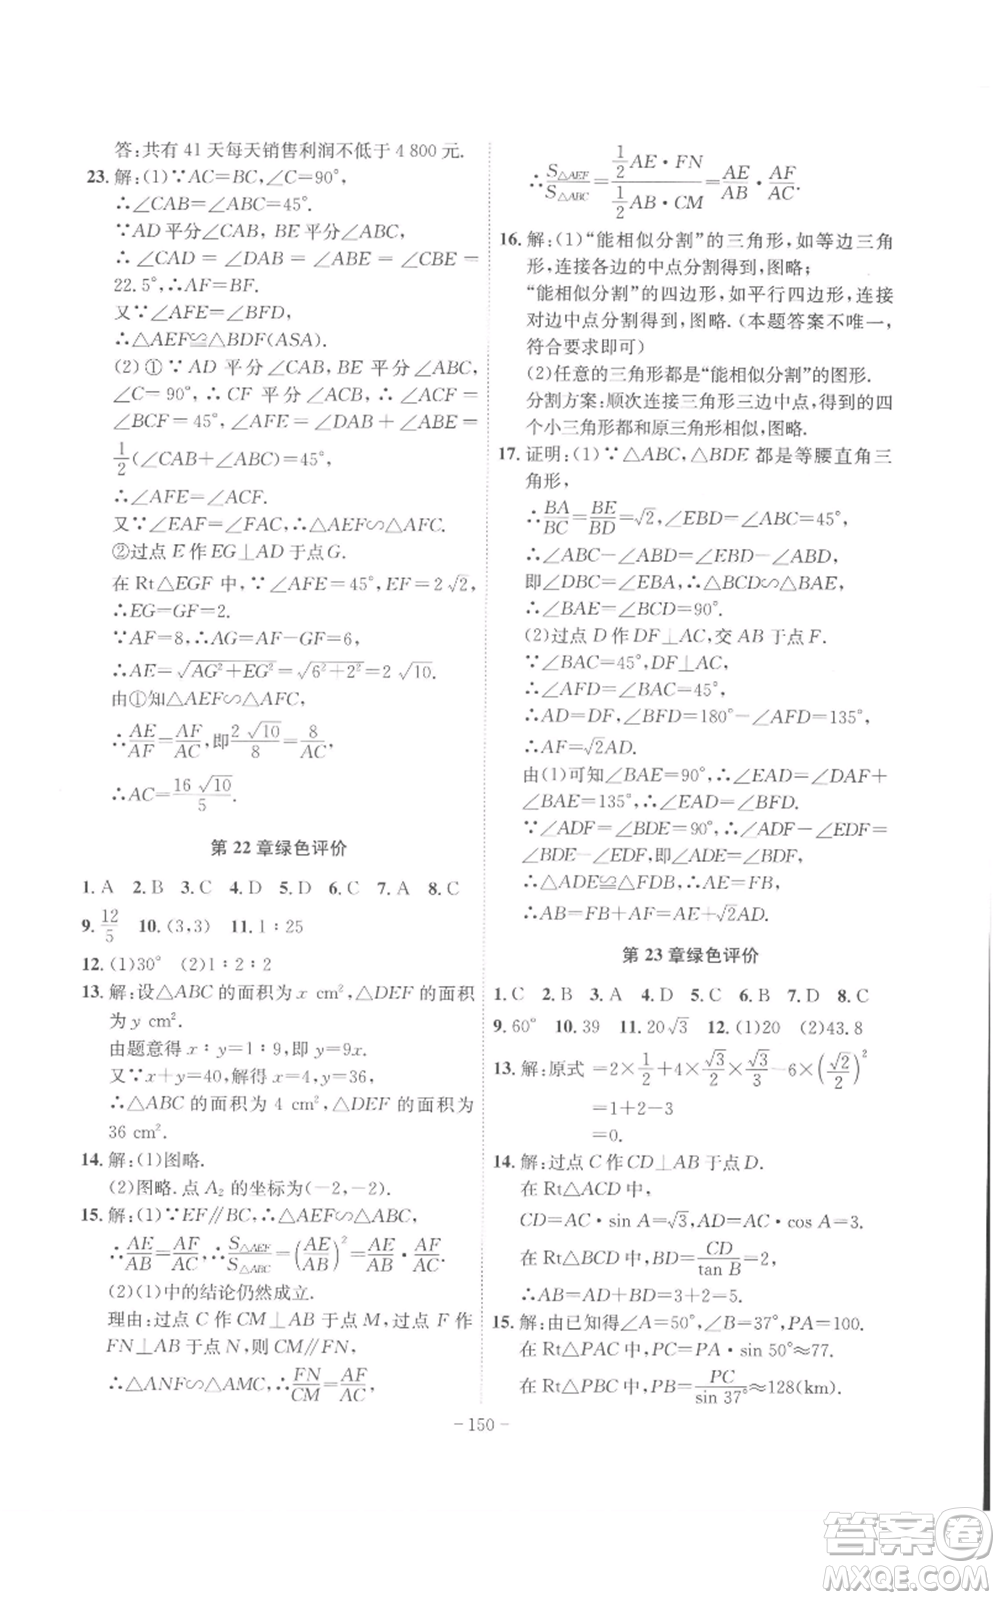 答:共有 41 天每天销售利润不低于 4 800 元.
23. 解:(1)∵AC=BC,∠C=90°,
∴∠CAB=∠CBA=45°.
∵AD 平分∠CAB, BE 平分∠ABC,
∴∠CAD = ∠DAB = ∠ABE = ∠CBE =
22.5°,∴AF=BF.
又∵∠AFE=∠BFD,
∴△AEF≌△BDF(ASA).
(2) ①∵ AD 平分∠CAB, BE 平分∠ABC,
∠C= 90°, ∴ CF 平分∠ACB, ∴ ∠ACF =
∠BCF = 45°, ∴ ∠AFE = ∠DAB + ∠ABE =
1/2(∠CAB+∠ABC)=45°,
∴∠AFE=∠ACF.
又∵∠EAF=∠FAC,∴△AEF∽△AFC.
②过点 E 作 EG⊥AD 于点 G.
在 Rt△EGF 中,∵∠AFE=45°,EF=2√2,
∴EG=GF=2.
∵AF=8,∴AG=AF-GF=6,
∴AE=√(AG²+EG²)=√(6²+2²)=2√10.
由①知△AEF∽△AFC,
∴AE/AF=AF/AC,即2√10/8=8/AC,
∴AC=16√10/5.
第 22 章绿色评价
1. A 2. B 3. C 4. D 5. D 6. C 7. A 8. C
9. 12/5 10. (3,3) 11. 1∶25
12. (1)30° (2)1∶2∶2
13. 解:设△ABC 的面积为 x cm²,△DEF 的面积
为 y cm².
由题意得 x∶y=1∶9,即 y=9x.
又∵x+y=40,解得 x=4,y=36,
∴△ABC 的面积为 4 cm²,△DEF 的面积为
36 cm².
14. 解:(1)图略.
(2)图略.点 A₂ 的坐标为(-2,-2).
15. 解:(1)∵EF∥BC,∴△AEF∽△ABC,
∴AE/AB=AF/AC,∴S△AEF/S△ABC=(AE/AB)²=AE/AB·AF/AC.
(2)(1)中的结论仍然成立.
理由:过点 C 作 CM⊥AB 于点 M,过点 F 作
FN⊥AB 于点 N,则 CM∥FN,
∴△ANF∽△AMC,∴FN/CM=AF/AC,
∴S△AEF/S△ABC=(1/2 AE·FN)/(1/2 AB·CM)=AE/AB·AF/AC.
16. 解:(1)“能相似分割”的三角形,如等边三角
形,连接各边的中点分割得到,图略;
“能相似分割”的四边形,如平行四边形,连接
对边中点分割得到,图略.(本题答案不唯一,
符合要求即可)
(2)任意的三角形都是“能相似分割”的图形.
分割方案:顺次连接三角形三边中点,得到的四
个小三角形都和原三角形相似,图略.
17. 证明:(1)∵△ABC,△BDE 都是等腰直角三
角形,
∴BA/BC=BE/BD=√2,∠EBD=∠ABC=45°,
∴∠ABC-∠ABD=∠EBD-∠ABD,
即∠DBC=∠EBA,∴△BCD∽△BAE,
∴∠BAE=∠BCD=90°.
(2)过点 D 作 DF⊥AC,交 AB 于点 F.
∵∠BAC=45°,DF⊥AC,
∴∠AFD=∠BAC=45°,
∴AD=DF,∠BFD=180°-∠AFD=135°,
∴AF=√2AD.
由(1)可知∠BAE=90°,∴∠EAD=∠DAF+
∠BAE=135°,∴∠EAD=∠BFD.
∵∠ADF=∠BDE=90°,∴∠ADF-∠EDF=
∠BDE-∠EDF,即∠ADE=∠FDB,
∴△ADE≌△FDB,∴AE=FB,
∴AB=FB+AF=AE+√2AD.
第 23 章绿色评价
1. C 2. B 3. A 4. D 5. C 6. B 7. D 8. C
9. 60° 10. 39 11. 20√3 12. (1)20 (2)43.8
13. 解:原式 =2×1/2+4×√3/2×√3/3-6×(√2/2)²
=1+2-3
=0.
14. 解:过点 C 作 CD⊥AB 于点 D.
在 Rt△ACD 中,
CD=AC·sin A=√3,AD=AC·cos A=3.
在 Rt△BCD 中,BD=CD/tan B=2,
∴AB=AD+BD=3+2=5.
15. 解:由已知得∠A=50°,∠B=37°,PA=100.
在 Rt△PAC 中,PC=PA·sin 50°≈77.
在 Rt△PBC 中,PB=PC/sin 37°≈128(km).
- 150 -
答案卷
MXQE.COM